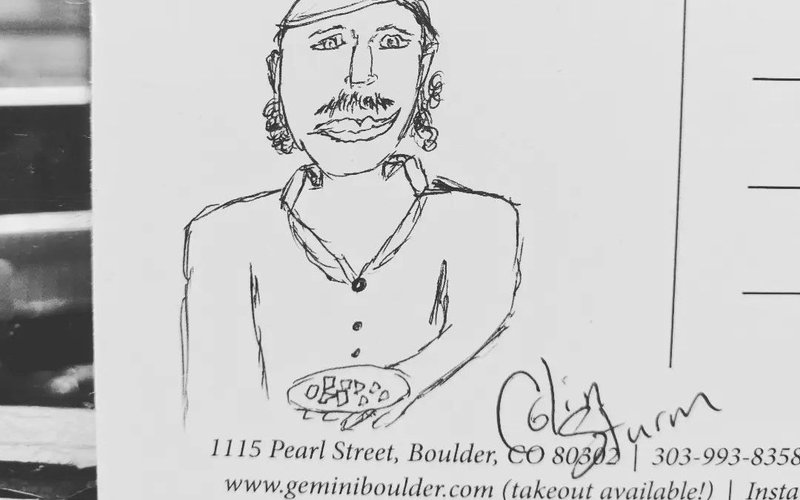 Colin Sturm
1115 Pearl Street, Boulder, CO 80302 | 303-993-8358
www.geminiboulder.com (takeout available!) | Insta